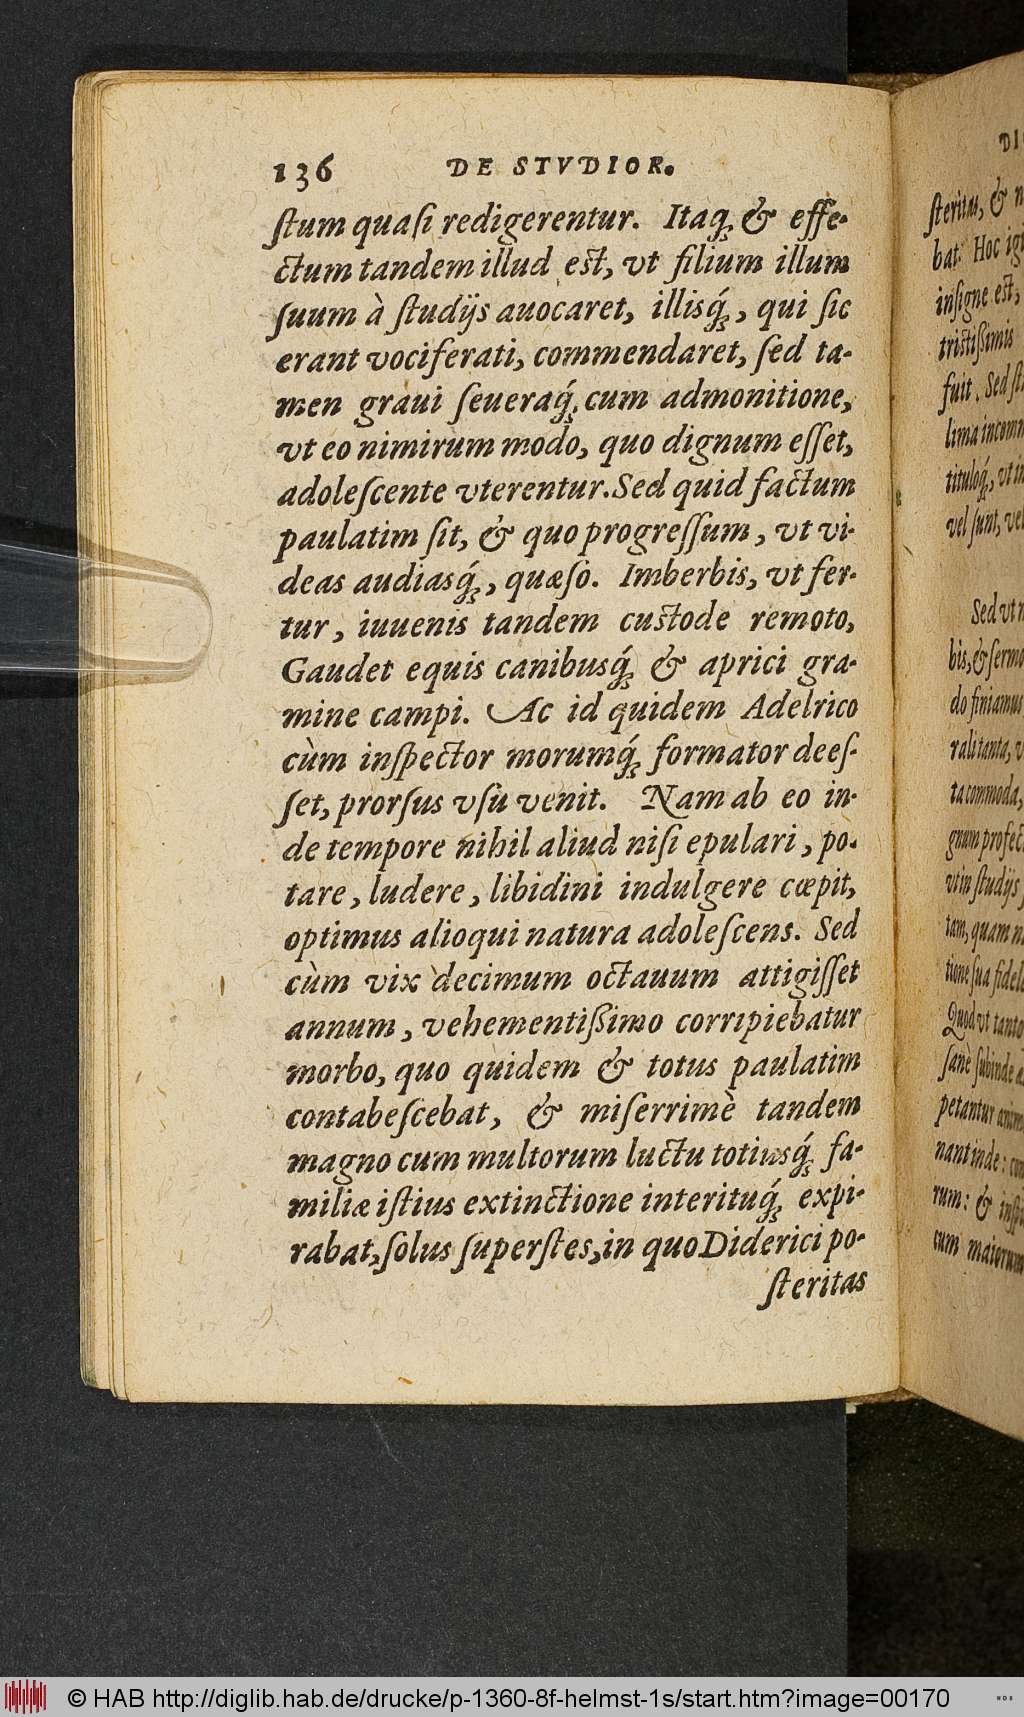 136 DE STVDIOR.
ſtum quaſi redigerentur. Itaq; & effe-
ctum tandem illud est, vt filium illum
ſuum à ſtudijs auocaret, illisq́;, qui ſic
erant vociferati, commendaret, ſed ta-
men graui ſeueraq́; cum admonitione,
vt eo nimirum modo, quo dignum eſſet,
adoleſcente vterentur. Sed quid factum
paulatim ſit, & quo progreſſum, vt vi-
deas audiasq́;, quæſo. Imberbis, vt fer-
tur, iuuenis tandem custode remoto,
Gaudet equis canibusq́; & aprici gra-
mine campi. Ac id quidem Adelrico
cùm inſpector morumq́; formator deeſ-
ſet, prorſus vſu venit. Nam ab eo in-
de tempore nihil aliud niſi epulari, po-
tare, ludere, libidini indulgere cœpit,
optimus alioqui natura adoleſcens. Sed
cùm vix decimum octauum attigiſſet
annum, vehementißimo corripiebatur
morbo, quo quidem & totus paulatim
contabeſcebat, & miſerrimè tandem
magno cum multorum luctu totiusq́; fa-
miliæ iſtius extinctione interituq́; expi-
rabat, ſolus ſuperſtes, in quo Diderici po-
ſteritas
ſteritas, &
bat. Hoc
inſigne est,
tristißimis
fuit. Sed
lima
tituloq́;, vt
vel ſunt,
Sed vt
bis, &
do finiamus
rali tanta,
ta commoda,
gnum
vt in ſtudijs
tam, quam
tione ſua
Quod vt tanto
ſanè ſubinde
petantur
nant inde:
rum: &
cum maiorum
© HAB http://diglib.hab.de/drucke/p-1360-8f-helmst-1s/start.htm?image=00170